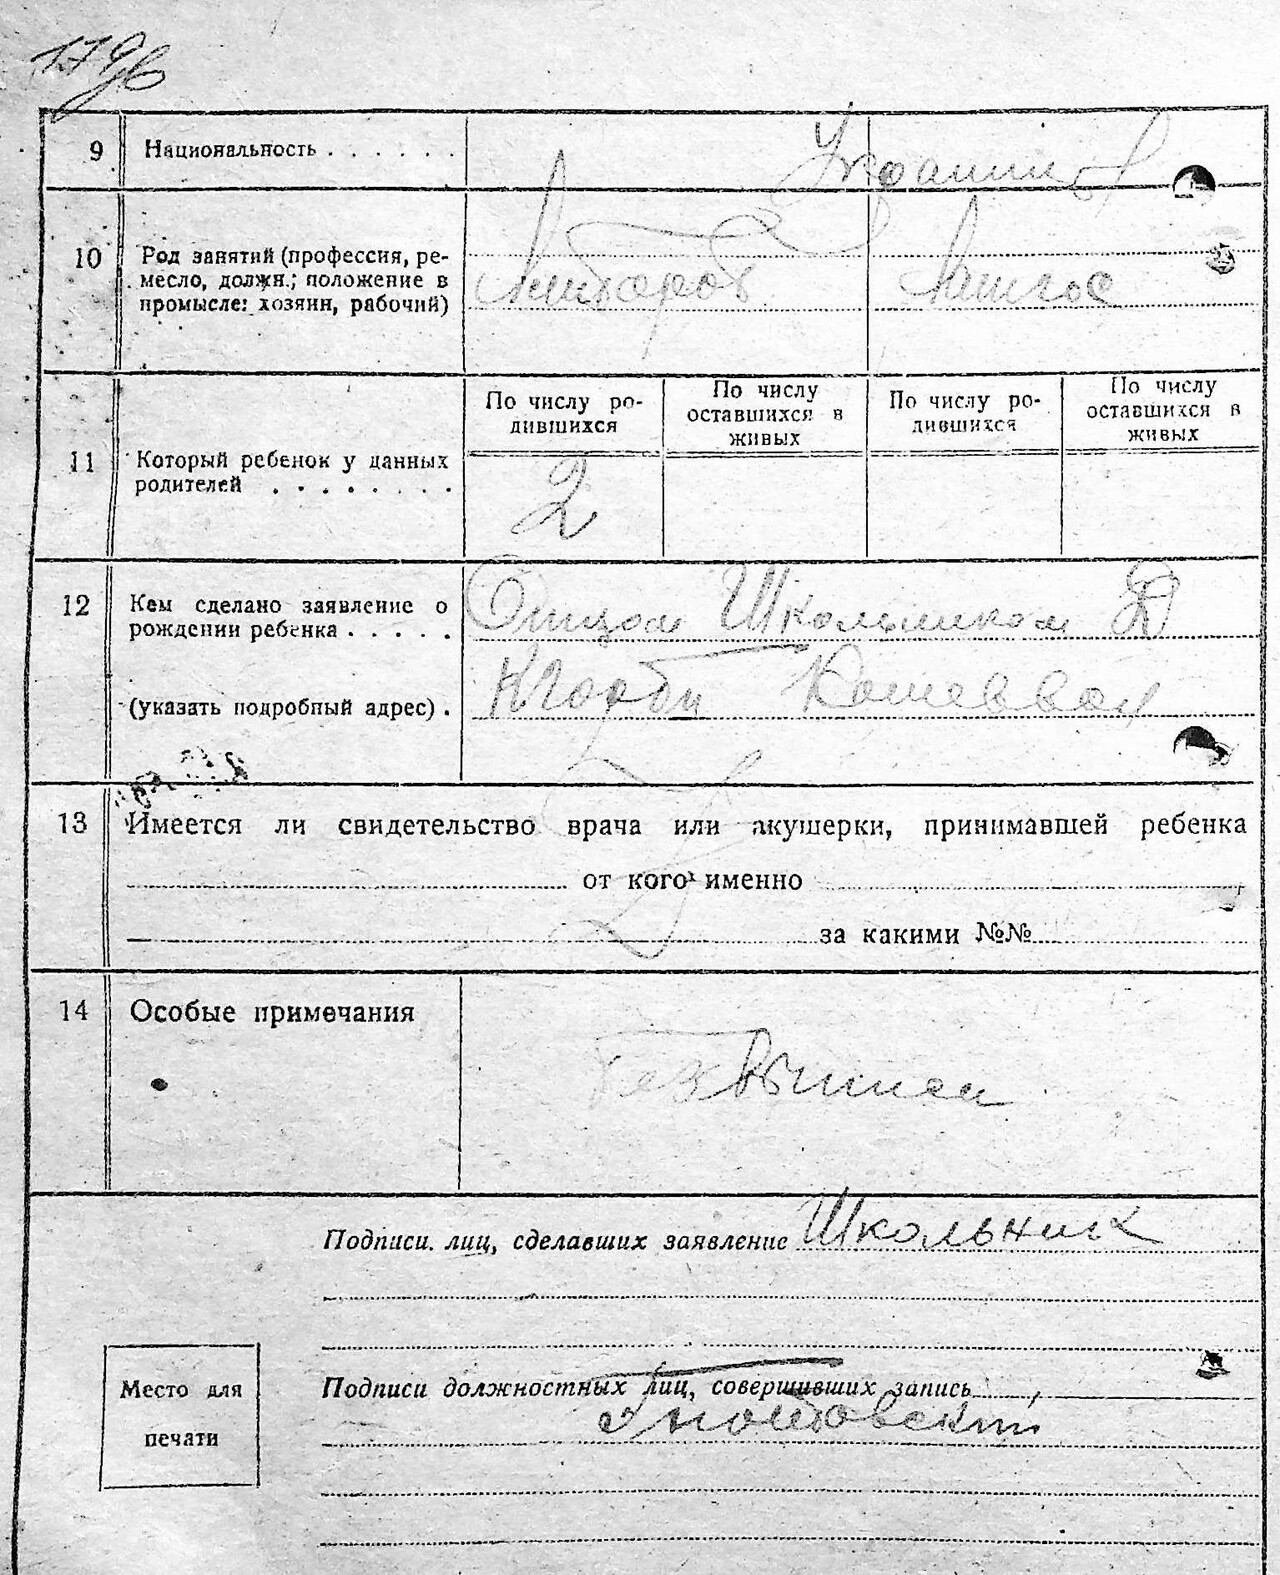 9 Национальность . . . . . .
10 Род занятий (профессия, ре-
месло, должн.; положение в
промысле: хозяин, рабочий)
По числу ро-
дившихся
По числу
оставшихся в
живых
По числу ро-
дившихся
По числу
оставшихся в
живых
11 Который ребенок у данных
родителей . . . . . . . .
2
12 Кем сделано заявление о
рождении ребенка . . . . .
Отцом Школьником
(указать подробный адрес) .
13 Имеется ли свидетельство врача или акушерки, принимавшей ребенка
от кого именно
за какими №№
14 Особые примечания
Подписи лиц, сделавших заявление Школьник
Место для
печати
Подписи должностных лиц, совершивших запись